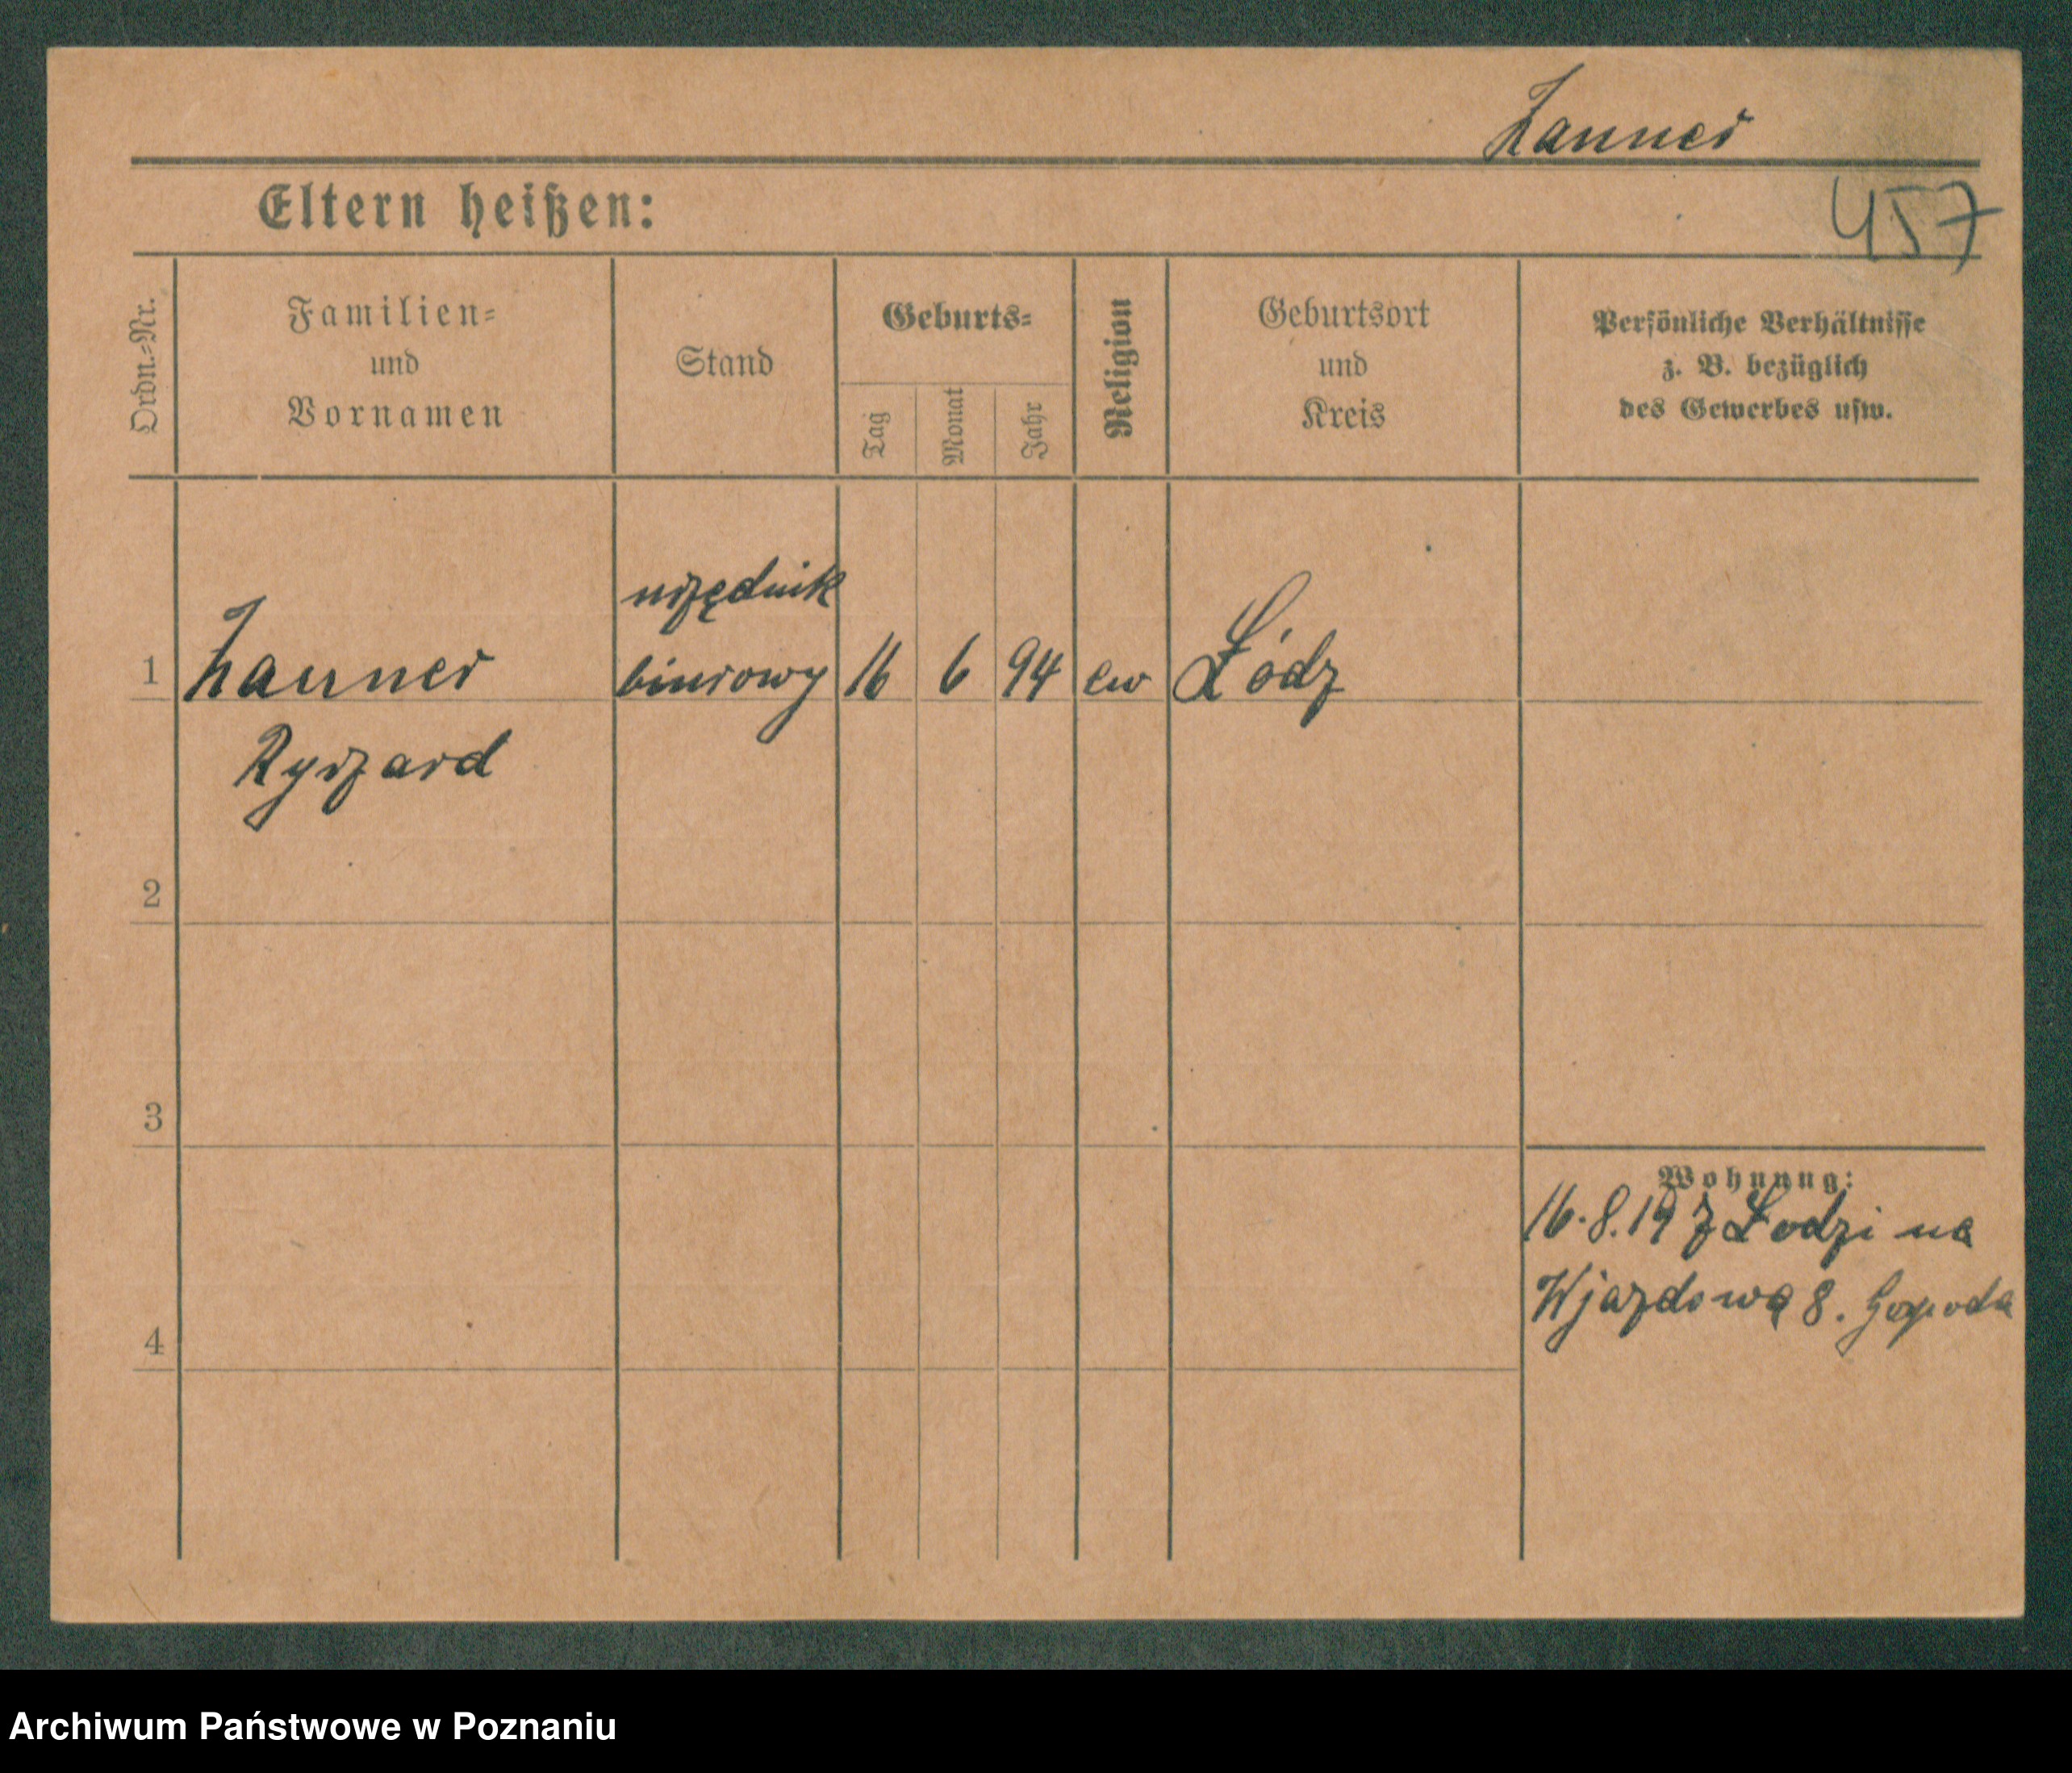 Zanner
457
Eltern heißen:
Ordn.-Nr.
Familien-
und
Vornamen
Stand
Geburts-
Tag
Monat
Jahr
Religion
Geburtsort
und
Kreis
Persönliche Verhältnisse
z. B. bezüglich
des Gewerbes usw.
urzędnik
1 Zanner biurowy 16 6 94 ew Łódz
Ryszard
2
3
Wohnung:
16.8.19 z Łodzi na
Wjazdową 8. Gospoda
4
Archiwum Państwowe w Poznaniu